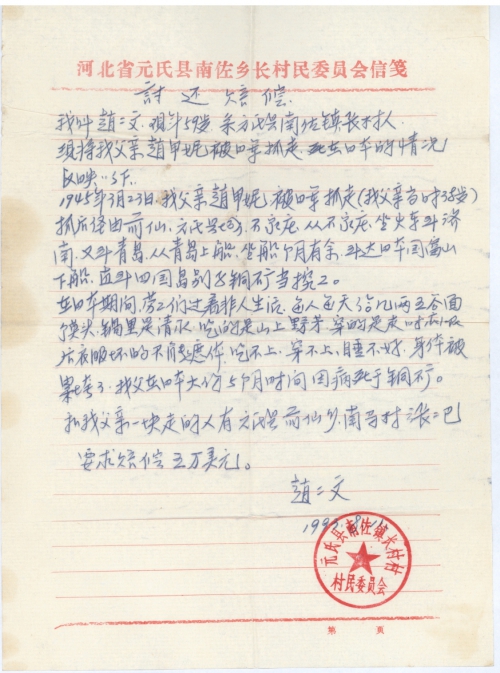 河北省元氏县南佐乡长村民委员会信笺
討还賠偿
我叫趙二文,现年59岁系元氏县南佐镇长村人
须将我父亲趙甲妮被日寇抓走死在日本的情况
反映以下
1945年3月23日,我父亲趙甲妮被日寇抓走(我父亲当时38岁)
抓后经由前仙,元氏县,石家庄,从石家庄坐火车到济
南,又到青岛,从青岛上船,坐船个月有余,到达日本国
下船,直到四国岛别子铜矿当挖工。
在日本期间,劳工们过着非人生活,每人每天给几两五谷面
窝头,锅里是清水,吃的是山上野草,穿的是走时
衣服坏的不能遮体,吃不上,穿不上,睡不好,身体被
累垮了,我父在日本大约5个月时间因病死于铜矿。
和我父亲一块走的人有元氏县前仙乡,南马村張二巴
要求賠偿五万美元。
趙二文
元氏县南佐镇长村村
村民委员会
第 页